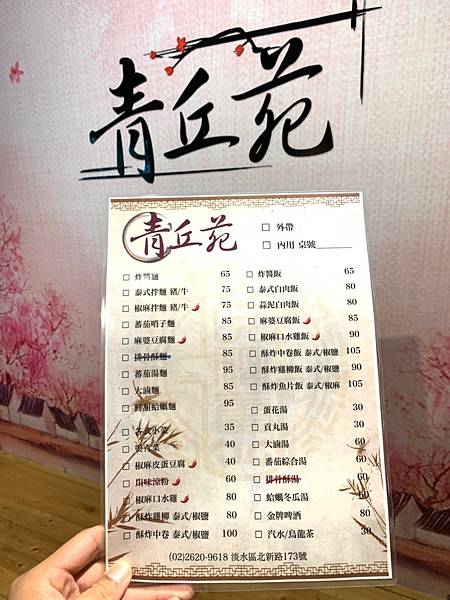 青丘苑
青丘苑
□ 外帶
□ 內用 桌號______
□ 炸醬麵 65
□ 泰式拌麵 豬/牛 75
□ 椒麻拌麵 豬/牛 75
□ 蕃茄哨子麵 85
□ 麻婆豆腐麵 85
□ 排骨酥麵 85
□ 蕃茄湯麵 85
□ 大滷麵 85
□ 鮮甜蛤蠣麵 95
□ 各式小菜 35
40
□ 椒麻皮蛋豆腐 40
□ 川味涼粉 60
□ 椒麻口水雞 80
□ 酥炸雞柳 泰式/椒鹽 80
□ 酥炸中卷 泰式/椒鹽 100
□ 炸醬飯 65
□ 泰式白肉飯 80
□ 蒜泥白肉飯 80
□ 麻婆豆腐飯 85
□ 椒麻口水雞飯 90
□ 酥炸中卷飯 泰式/椒鹽 105
□ 酥炸雞柳飯 泰式/椒鹽 90
□ 酥炸魚片飯 泰式/椒麻 105
□ 蛋花湯 30
□ 貢丸湯 30
□ 大滷湯 60
□ 番茄綜合湯 60
□ 排骨酥湯 60
□ 蛤蠣冬瓜湯 60
□ 金牌啤酒 80
□ 汽水/烏龍茶 30
(02)2620-9618 淡水區北新路173號